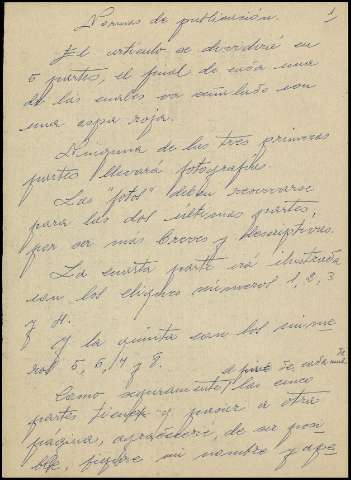 Normas de publicación. 1/
El artículo se dividirá en
5 partes, el final de cada una
de las cuales va señalado con
una aspa roja.
Ninguna de las tres primeras
partes llevará fotografías
Las "fotos" deben reservarse
para las dos últimas partes,
por ser más breves y descriptivas.
La cuarta parte irá ilustrada
con los cliques números 1, 2, 3
y 4.
Y la quinta con los núme
ros 5, 6, 7 y 8.
al pie de cada una de
Como seguramente, las cinco
partes tienen q pasar a otra
página, agradeceré, de ser posi
ble, figure mi nombre y ape